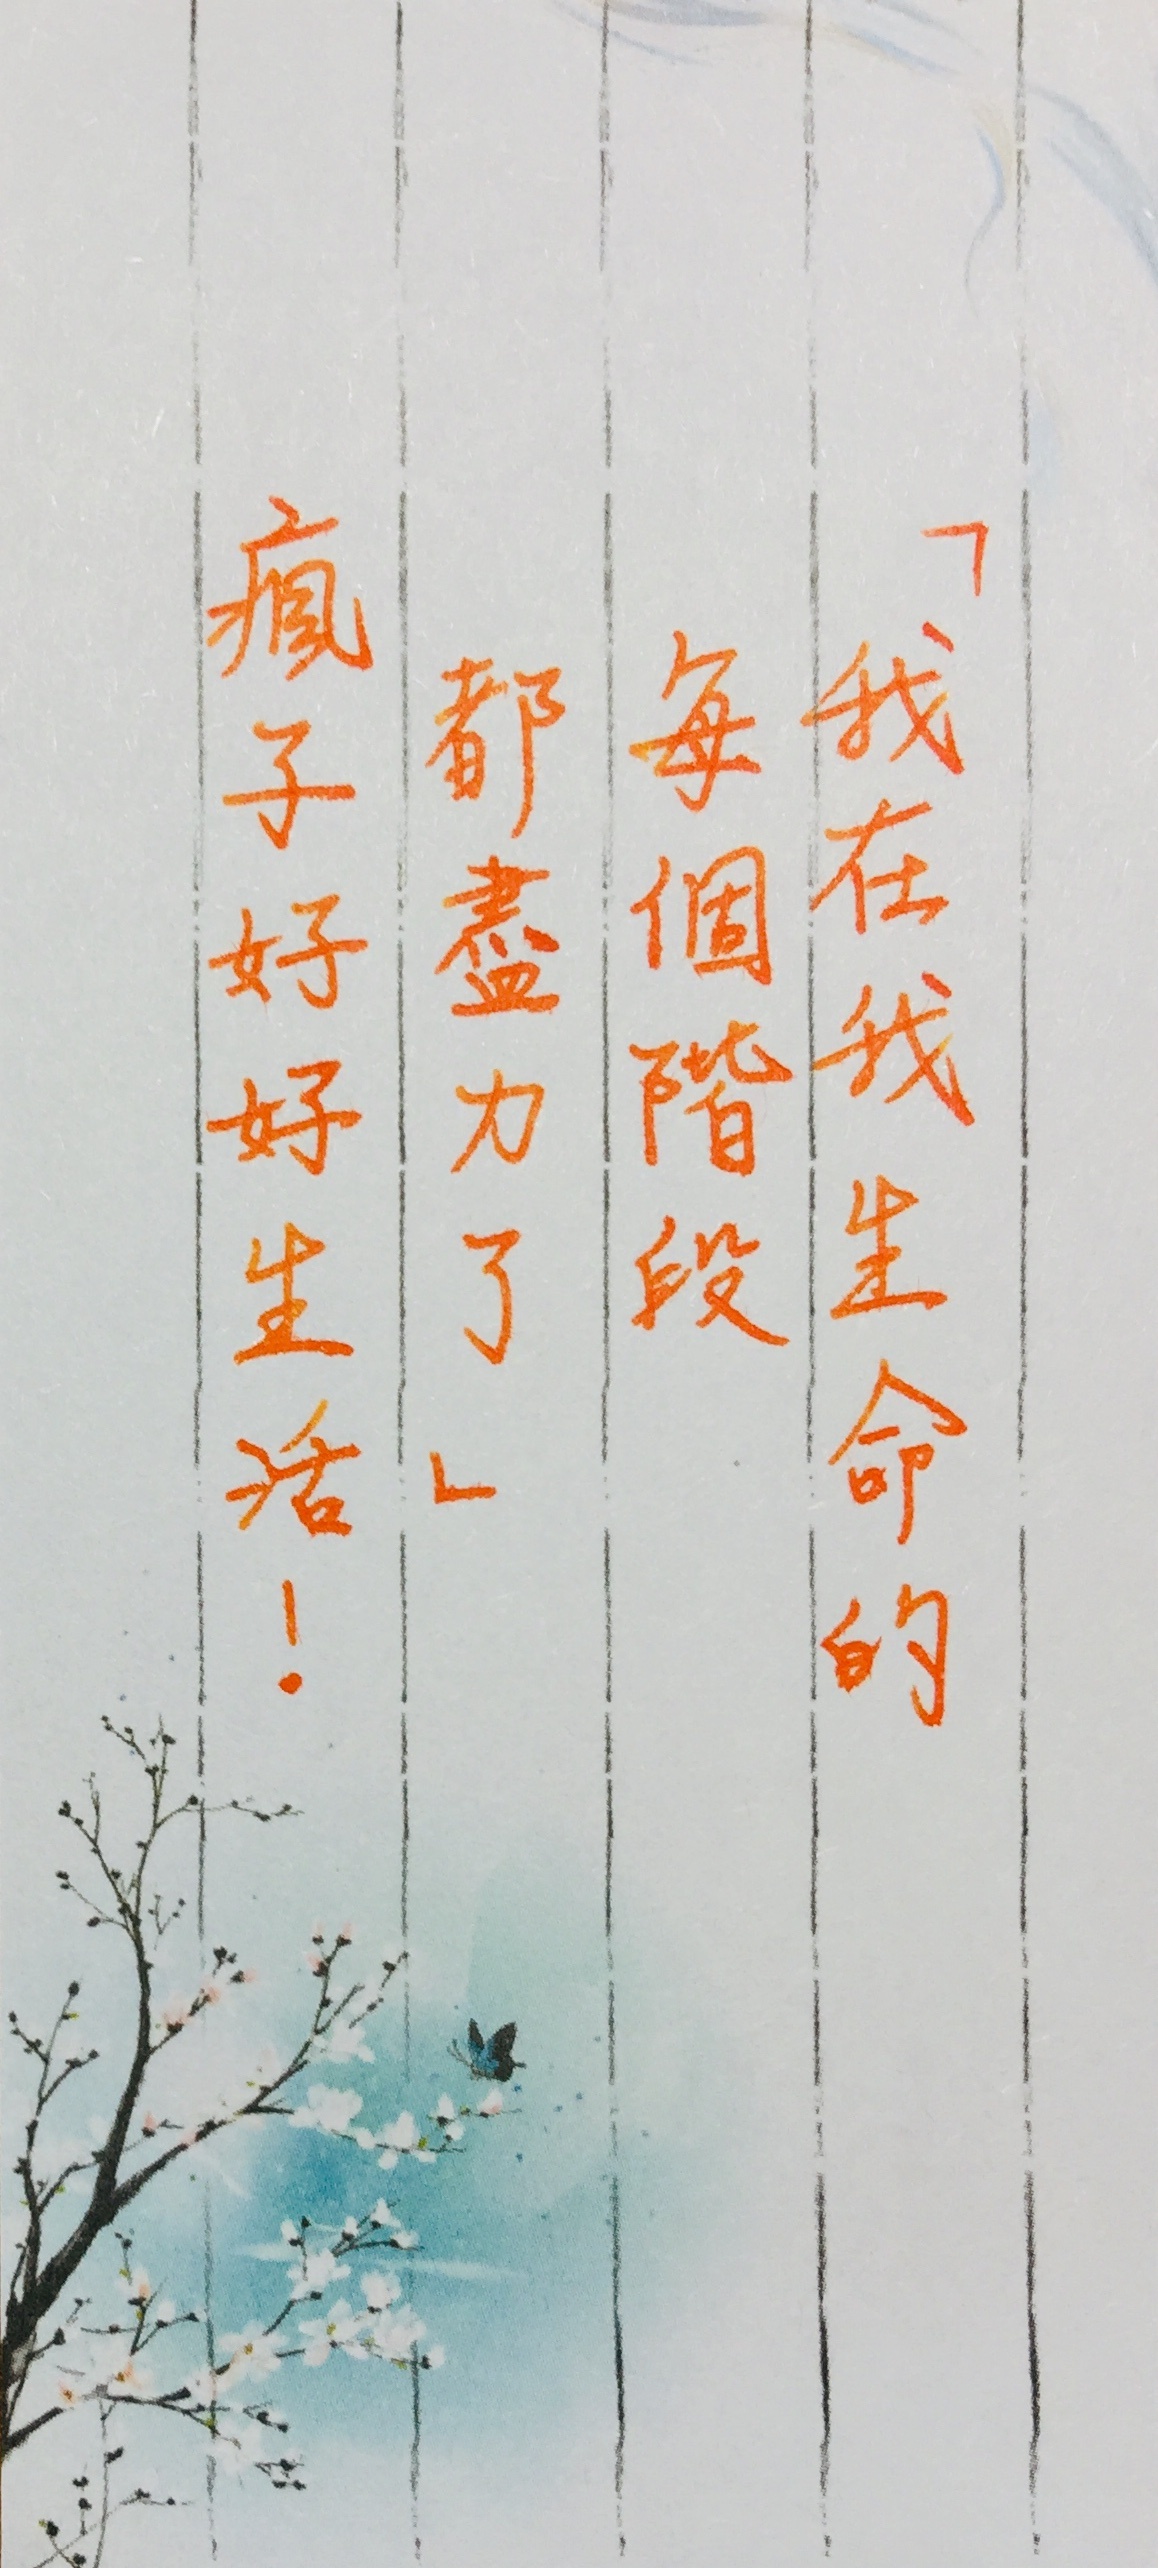 「我在我生命的
每個階段
都盡力了」
瘋子好好生活！